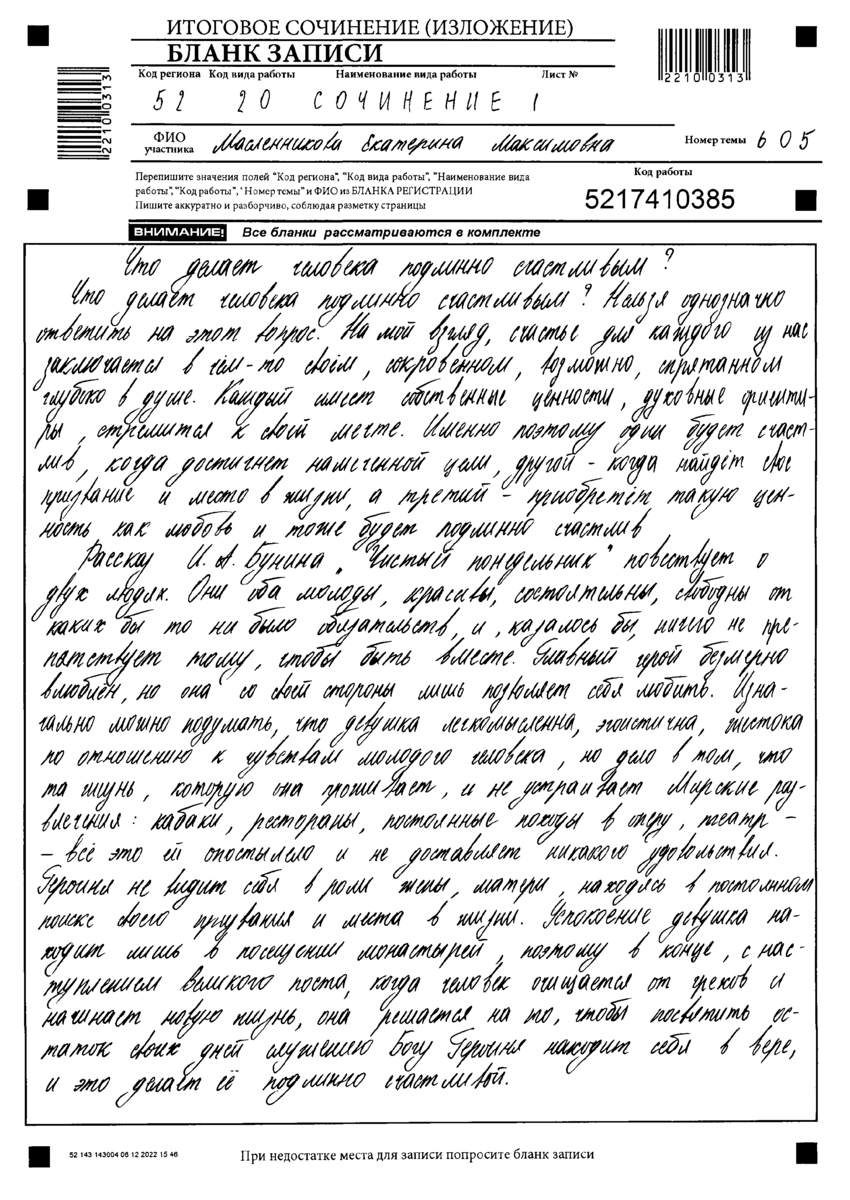 ИТОГОВОЕ СОЧИНЕНИЕ (ИЗЛОЖЕНИЕ)
БЛАНК ЗАПИСИ
Код региона Код вида работы Наименование вида работы Лист №
52 20 СОЧИНЕНИЕ 1
2210 0313
2210 0313
ФИО участника Масленникова Екатерина Максимовна Номер темы 605
Перепишите значения полей "Код региона", "Код вида работы", "Наименование вида
работы", "Код работы", "Номер темы" и ФИО из БЛАНКА РЕГИСТРАЦИИ
Пишите аккуратно и разборчиво, соблюдая разметку страницы
Код работы
5217410385
ВНИМАНИЕ! Все бланки рассматриваются в комплекте
Что делает человека подлинно счастливым?
Что делает человека подлинно счастливым? Нельзя однозначно
ответить на этот вопрос. На мой взгляд, счастье для каждого из нас
заключается в чём-то своём, сокровенном, возможно, спрятанном
глубоко в душе. Каждый имеет собственные ценности, духовные ориенти-
ры, стремится к своей мечте. Именно поэтому один будет счаст-
лив, когда достигнет намеченной цели, другой - когда найдёт свое
призвание и место в жизни, а третий - приобретёт такую цен-
ность как любовь и тоже будет подлинно счастлив
Рассказ И. А. Бунина "Чистый понедельник" повествует о
двух людях. Они оба молоды, красивы, состоятельны, свободны от
каких бы то ни было обязательств, и, казалось бы, ничего не пре-
пятствует тому, чтобы быть вместе. Главный герой безмерно
влюблён, но она со своей стороны лишь позволяет себя любить. Изна-
чально можно подумать, что девушка легкомысленна, эгоистична, жестока
по отношению к чувствам молодого человека, но дело в том, что
та жизнь, которую она проживает, и не устраивает Мирские раз-
влечения: кабаки, рестораны, постоянные походы в оперу, театр -
- всё это ей опостылело и не доставляет никакого удовольствия.
Героиня не видит себя в роли жены, матери, находясь в постоянном
поиске своего призвания и места в жизни. Успокоение девушка на-
ходит лишь в посещении монастырей, поэтому в конце, с нас-
туплением Великого поста, когда человек очищается от грехов и
начинает новую жизнь, она решается на то, чтобы посвятить ос-
таток своих дней служению Богу Героиня находит себя в вере,
и это делает её подлинно счастливой.
52 143 143004 06 12 2022 15 46
При недостатке места для записи попросите бланк записи